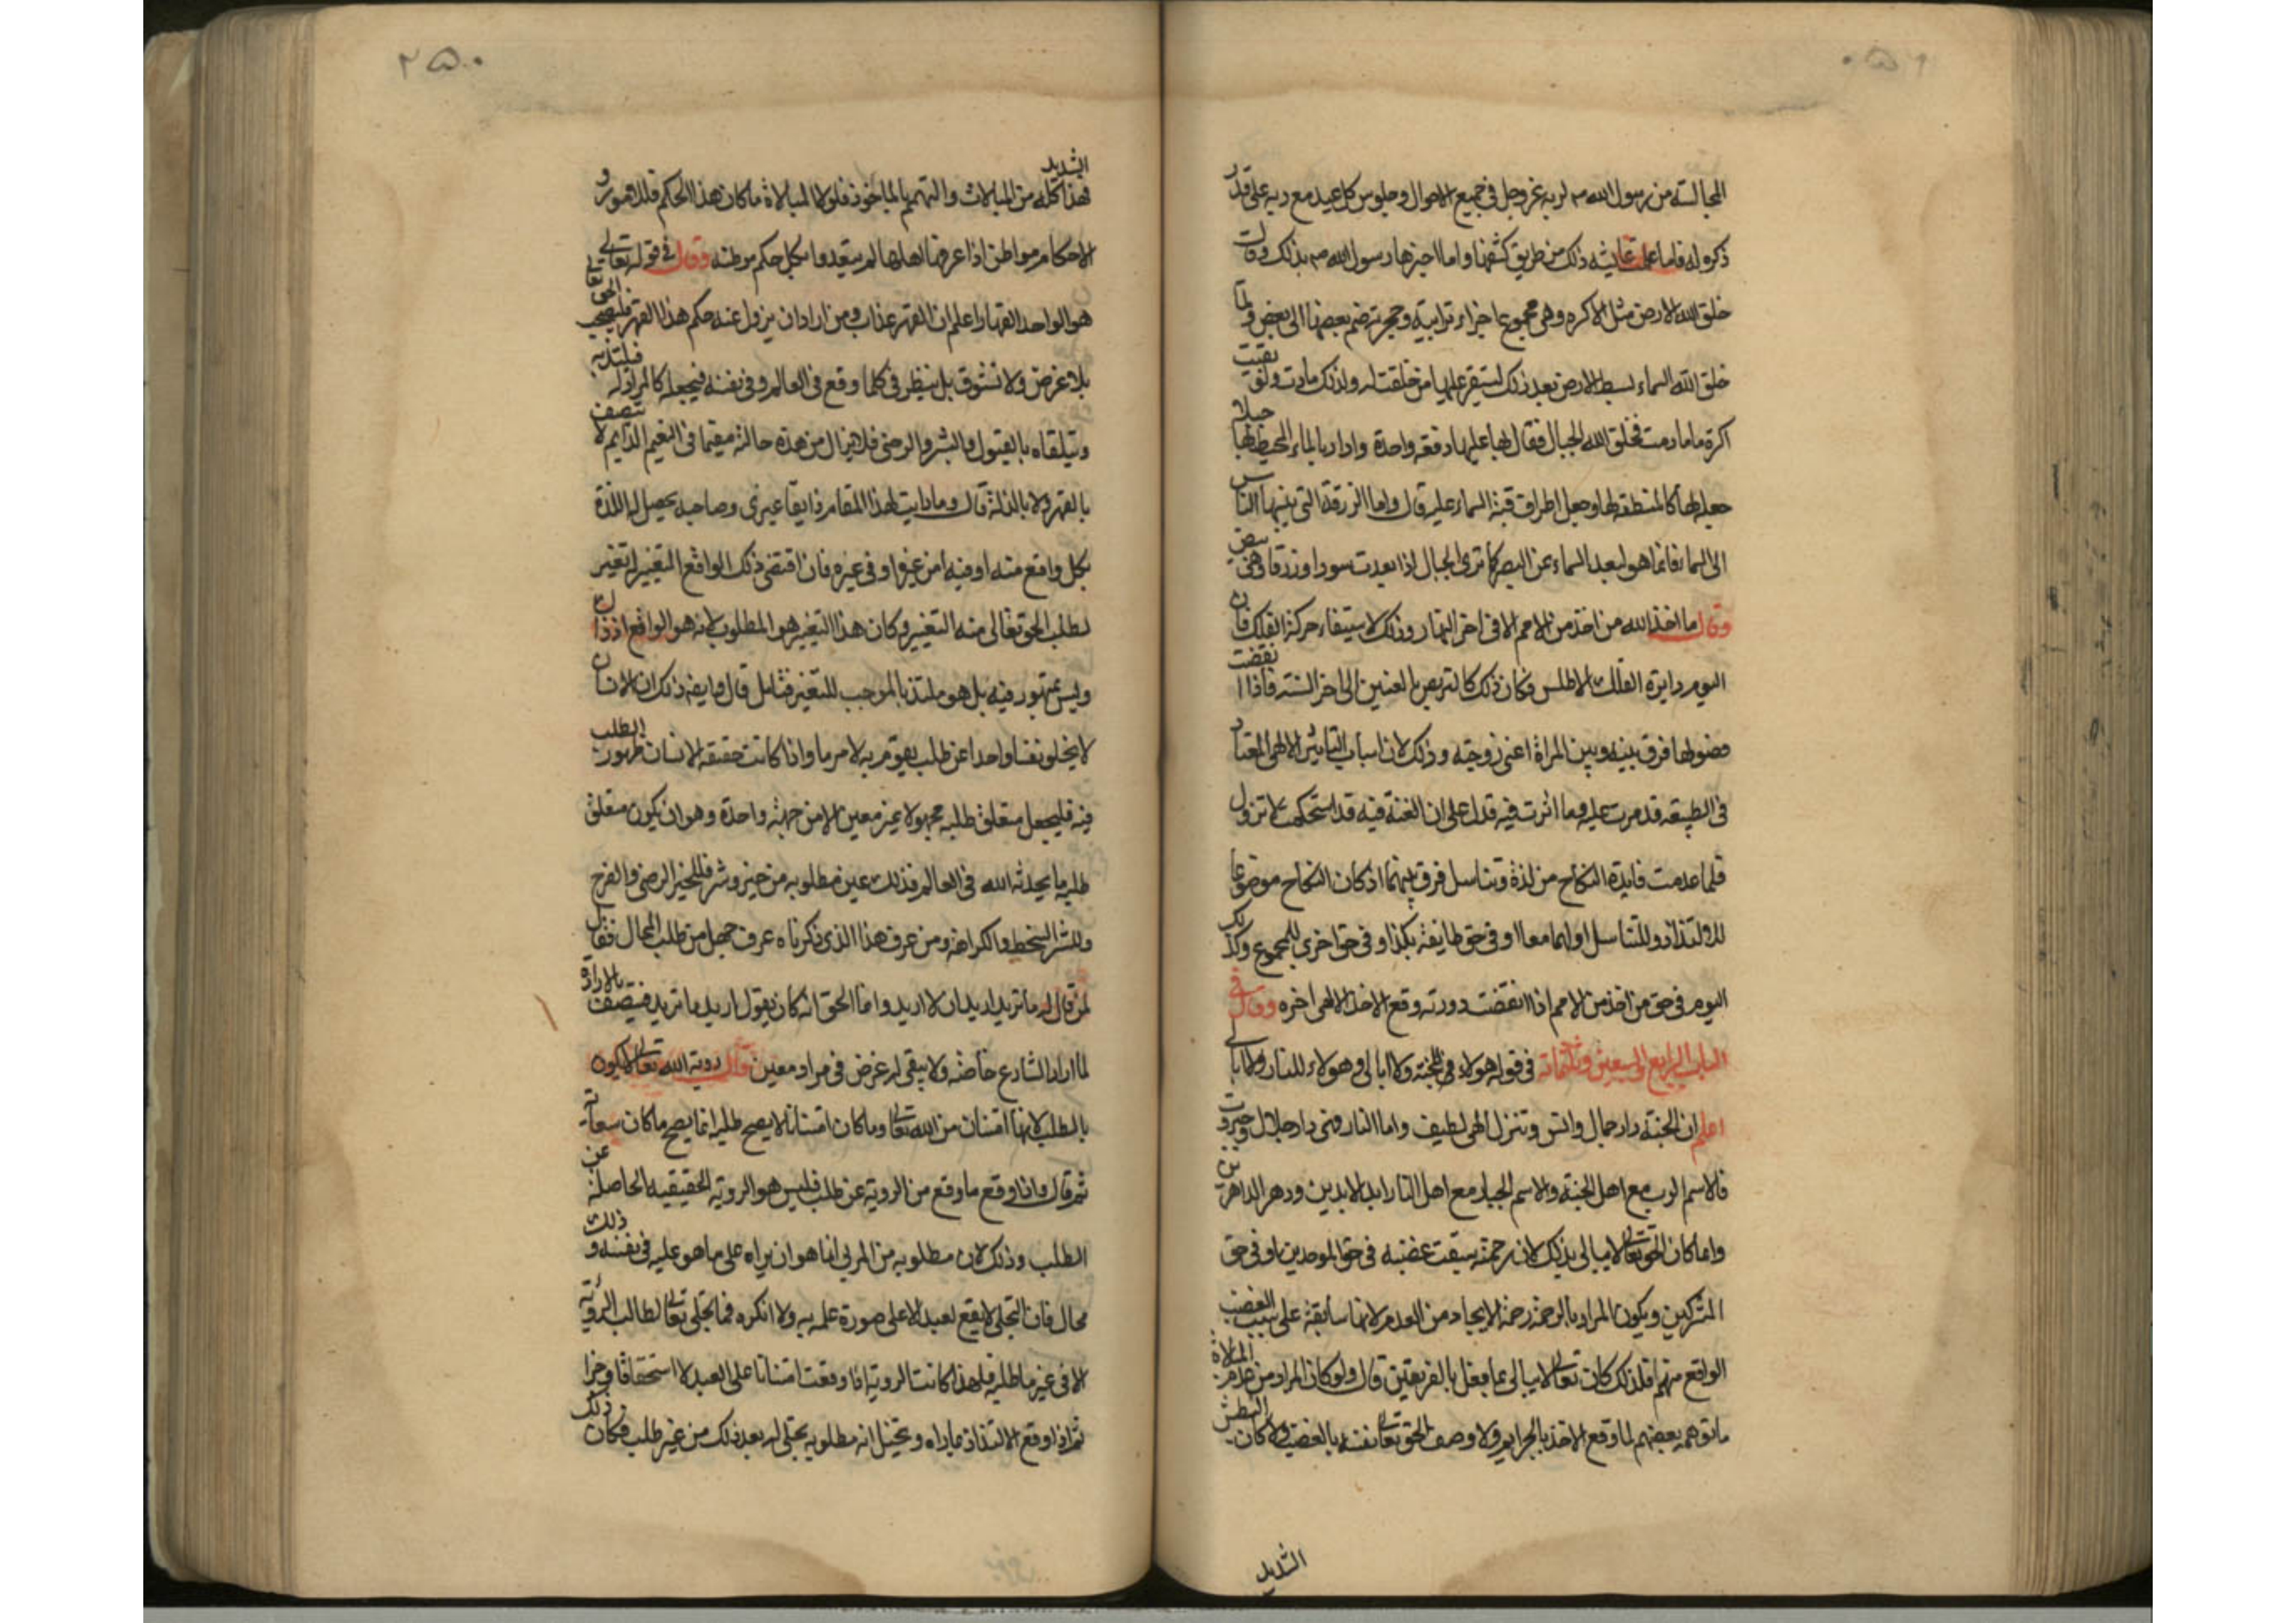 المجالسة من رسول الله صم لربه عز وجل في جميع الاحوال وجلوس كل عبد مع ربه على قدر
ذكره له فاما علمت عايشه ذلك من طريق كشفها واما اخبرها رسول الله صم بذلك وقال
خلق الله الارض مثل الاكره وهي مجموع اجزاء ترابية وحجرية ضم بعضها الى بعض ولما
خلق الله السماء بسط الارض بعد ذلك ليستقر عليها من خلقت له ولذلك مادت ولو بقيت
اكرة ما مادت فخلق الله الجبال فقال بها عليها دفعة واحدة وادار بالماء المحيط بها جبلا
جعله لها كالمنطقه لها وجعل اطراف قبة السماء عليه قال واما الزرقة التي ينسبها الناس
الى السماء فانما هو لبعد السماء عن البصر كما ترى الجبال اذا بعدت سودا وزرقا وهي بيض
وقال ما اخذ الله من اخذ من الامم الا في اخر النهار وذلك لاستيفاء حركة الفلك فان
اليوم دايرة الفلك الاطلس فكان ذلك كالتربص بالعنين الى اخر السنة فاذا انقضت
فصولها فرق بينه وبين المراة اعني زوجته وذلك لان اسباب التاثير الالهي المعتاد
في الطبيعه قد مرت عليه وما اثرت فيه فدل على ان العنة فيه قد استحكمت لا تزول
فلما عدمت فايدة النكاح من لذة وتناسل فرق بينهما اذ كان النكاح موضوعا
للالتذاذ وللتناسل او لهما معا او في حق طايفة بكذا وفي حق اخرى للمجموع وكذلك
اليوم في حق من اخذ من الامم اذا انقضت دورته وقع الاخذ الالهي اخره وقال في
الباب الرابع والسبعين وثلثمائه في قوله هولاء في الجنة ولا ابالي وهولاء للنار ولا ابالي
اعلم ان الجنة دار جمال وانس وتنزل الهي لطيف واما النار فهي دار جلال وجبروت
فالاسم الرب مع اهل الجنة والاسم الجبار مع اهل النار ابد الابدين ودهر الداهرين
وانما كان الحق تعالى لا يبالي بذلك لان رحمته سبقت غضبه في حق الموحدين او في حق
المشركين ويكون المراد بالرحمة رحمة الايجاد من العدم لانها سابقة على سبب الغضب
الواقع منهم فلذلك كان تعالى لا يبالي بما فعل بالفريقين قال ولو كان المراد من عدم المبالاة
ما توهمه بعضهم لما وقع الاخذ بالجرايم ولا وصف الحق تعالى نفسه بالغضب ولا كان البطش
الشديد
٢٥٠
الشديد
فهذا كله من المبالات والتهمم بالماخوذ فلولا المبالاة ما كان هذا الحكم فللامور و
الاحكام مواطن اذا عرفها اهلها لم يتعدوا بكل حكم موطنه وقال في قوله تعالى
هو الواحد القهار اعلم ان القهر عذاب ومن اراد ان يزول عنه حكم هذا القهر فليصحب الحق تعالى
بلا غرض ولا تشوق بل ينظر في كلما وقع في العالم وفي نفسه فيجعله كالمراد له فيلتذ به
ويتلقاه بالقبول والبشر والرضى فلا يزال من هذه حالته مقيما في النعيم الدايم لا يتصف
بالقهر ولا بالذلة قال وما رايت لهذا المقام ذايقا غيري وصاحبه يحصل له اللذة
بكل واقع منه او فيه او من غيره او في غيره فان اقتضى ذلك الواقع التغير له تغير
لطلب الحق تعالى منه التغير وكان هذا التغير هو المطلوب لانه هو الواقع اذ ذاك
وليس بمقهور فيه بل هو ملتذ بالموجب للتغير فتامل قال وايضاح ذلك ان الانسان
لا يخلو نفسا واحدا عن طلب يقوم به لامر ما واذا كانت حقيقة الانسان ظهور الطلب
فيه فليجعل متعلق طلبه مجهولا غير معين الا من جهة واحدة وهو ان يكون متعلق
طلبه ما يحدثه الله في العالم فذلك عين مطلوبه من خير وشر فللخير الرضى والفرح
وللشر السخط والكراهة ومن عرف هذا الذي ذكرناه عرف جهل من طلب المحال فقال
لمن قال له ما تريد اريد ان لا اريد وانما الحق انه كان يقول اريد ما تريد فيتصف بالارادة
لما اراد الشارع خاصة ولا يبقى له غرض في مراد معين وقال روية الله تعالى لا تكون
بالطلب لانها امتنان من الله تعالى وما كان امتنانا لا يصح طلبه انما يصح ما كان
ثم قال واذا وقع ما وقع من الروية عن طلب فليس هو الروية الحقيقيه الحاصلة عن
الطلب وذلك لان مطلوبه من المرئي انما هو ان يراه على ما هو عليه في نفسه و ذلك
محال فان التجلي لا يقع لعبد الا على صورة علمه به والا انكره فما تجلى تعالى لطالب الروية
الا في غير ما طلب فلهذا كانت الروية اذا وقعت امتنانا على العبد لا استحقاقا وجزا
ثم اذا وقع الالتذاذ بما راه وتخيل انه مطلوبه تجلى له بعد ذلك من غير طلب فكان ذلك